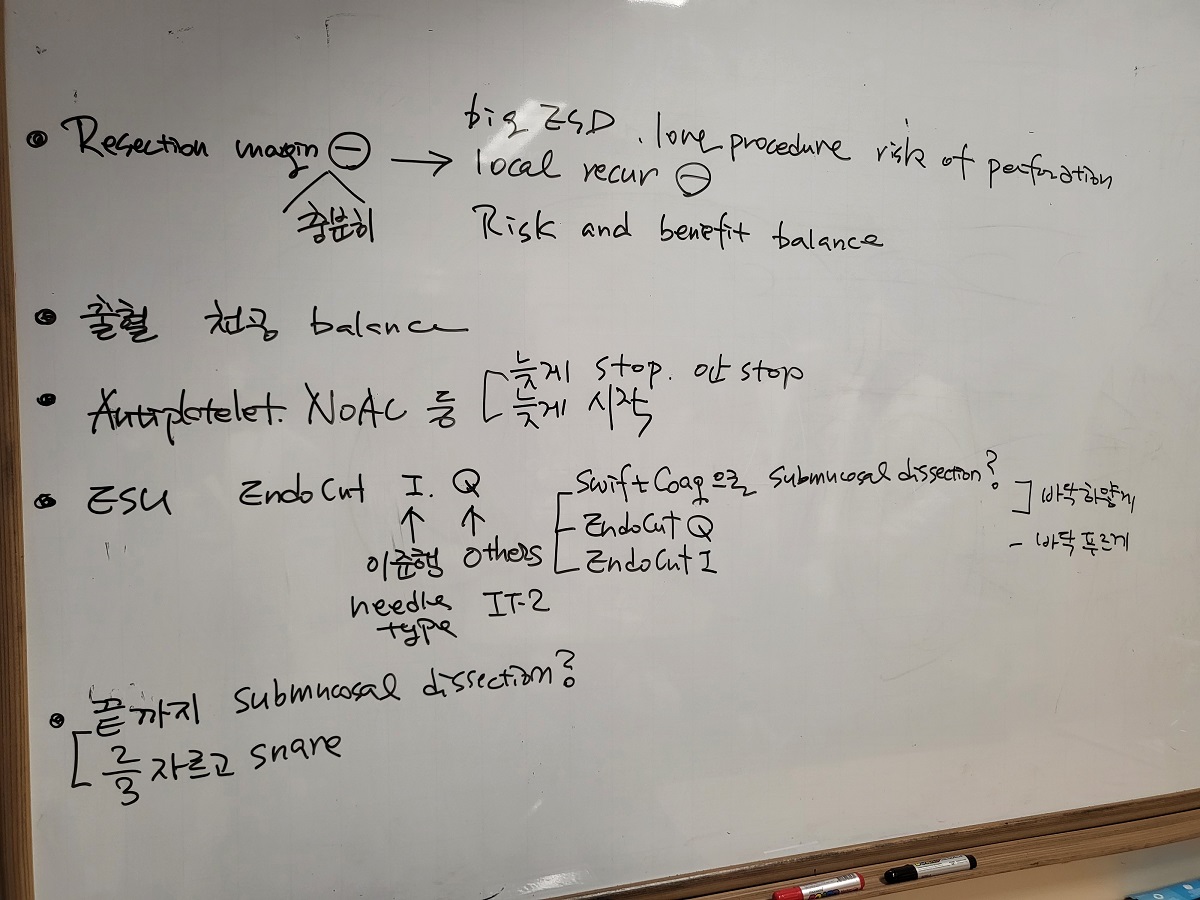 • Resection margin ⊖ → big ESD. long procedure risk of perforation
local recur ⊖
충분히
Risk and benefit balance
• 출혈 천공 balance
• Antiplatelet. NOAC 등 늦게 stop. 안 stop
늦게 시작
• ESU EndoCut I. Q
↑ ↑
이준행 others
needle type IT-2
Swift Coag으로 submucosal dissection?
EndoCut Q
EndoCut I
] 바닥 하얗게
- 바닥 푸르게
• 끝까지 submucosal dissection?
2/3 자르고 snare